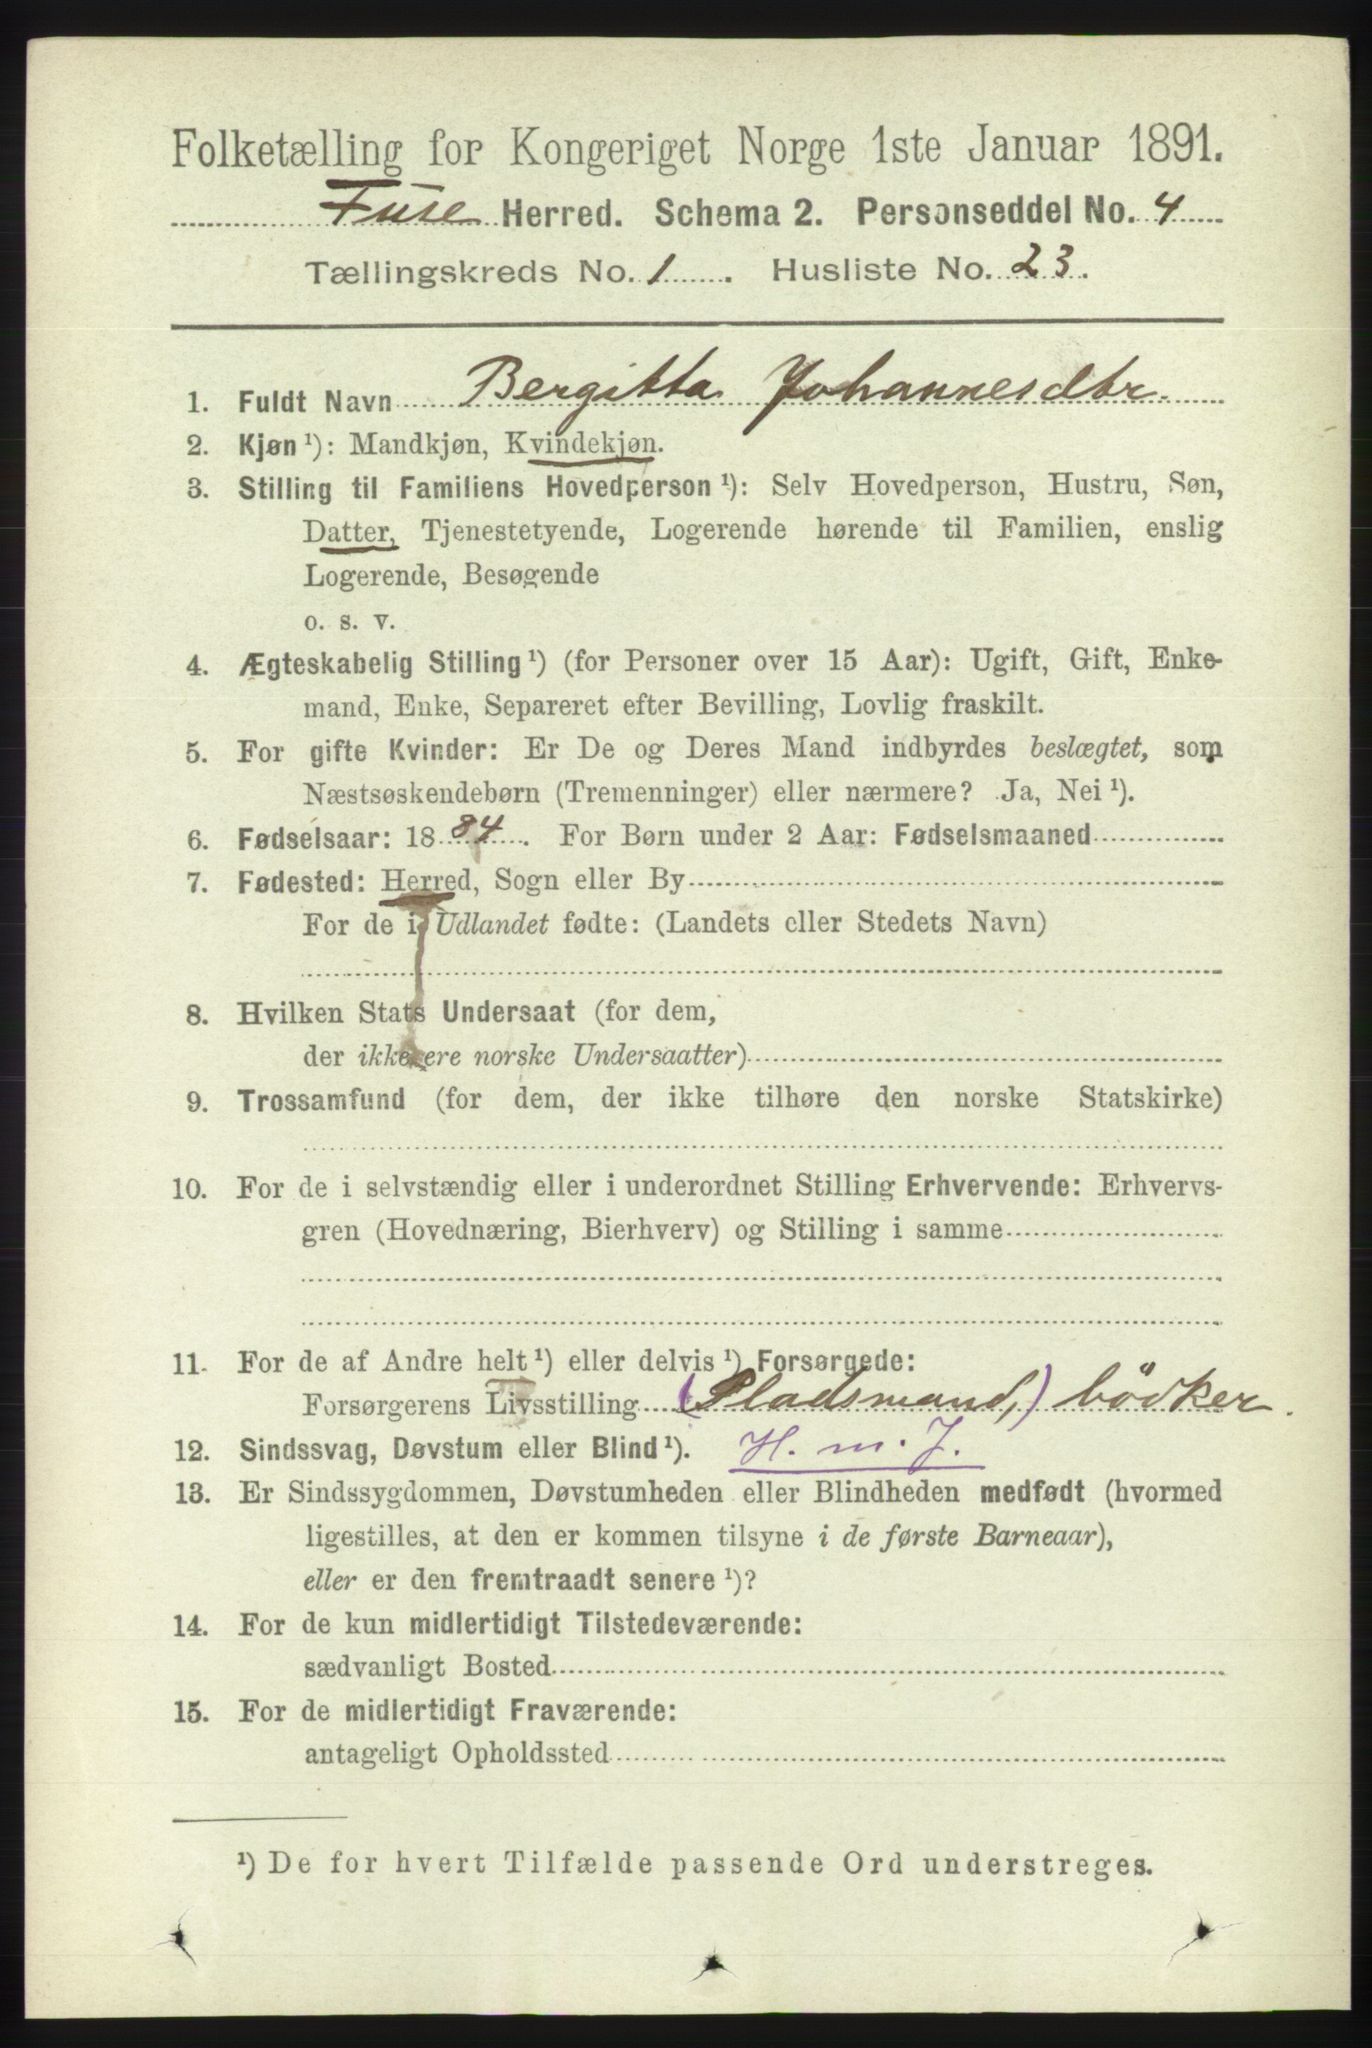 Folketælling for Kongeriget Norge 1ste Januar 1891.
Fuse Herred. Schema 2. Personseddel No. 4
Tællingskreds No. 1. Husliste No. 23.
1. Fuldt Navn Bergitta Johannesdtr.
2. Kjøn ¹): Mandkjøn, Kvindekjøn.
3. Stilling til Familiens Hovedperson ¹): Selv Hovedperson, Hustru, Søn,
Datter, Tjenestetyende, Logerende hørende til Familien, enslig
Logerende, Besøgende
o. s. v.
4. Ægteskabelig Stilling ¹) (for Personer over 15 Aar): Ugift, Gift, Enke-
mand, Enke, Separeret efter Bevilling, Lovlig fraskilt.
5. For gifte Kvinder: Er De og Deres Mand indbyrdes beslægtet, som
Næstsøskendebørn (Tremenninger) eller nærmere? Ja, Nei ¹).
6. Fødselsaar: 1884. For Børn under 2 Aar: Fødselsmaaned
7. Fødested: Herred, Sogn eller By
For de i Udlandet fødte: (Landets eller Stedets Navn)
8. Hvilken Stats Undersaat (for dem,
der ikke ere norske Undersaatter)
9. Trossamfund (for dem, der ikke tilhøre den norske Statskirke)
10. For de i selvstændig eller i underordnet Stilling Erhvervende: Erhvervs-
gren (Hovednæring, Bierhverv) og Stilling i samme
11. For de af Andre helt ¹) eller delvis ¹) Forsørgede:
Forsørgerens Livsstilling (Pladsmand,) bödker.
12. Sindssvag, Døvstum eller Blind ¹). H. m. J.
13. Er Sindssygdommen, Døvstumheden eller Blindheden medfødt (hvormed
ligestilles, at den er kommen tilsyne i de første Barneaar),
eller er den fremtraadt senere ¹)?
14. For de kun midlertidigt Tilstedeværende:
sædvanligt Bosted
15. For de midlertidigt Fraværende:
antageligt Opholdssted
¹) De for hvert Tilfælde passende Ord understreges.